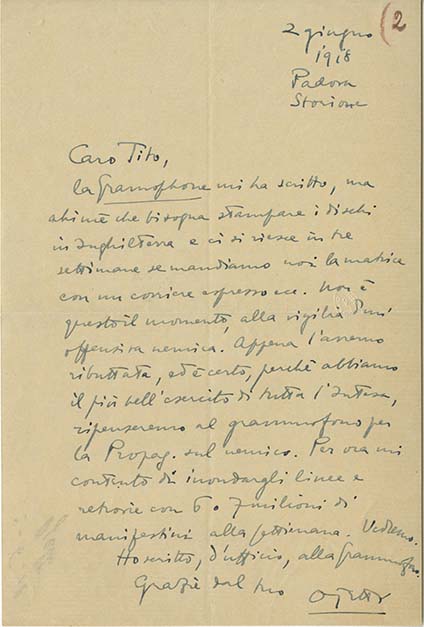 2 giugno (2
1918
Padova
Storione
Caro Tito,
la Gramophone mi ha scritto, ma
ahimè che bisogna stampare i dischi
in Inghilterra e ci si riesce in tre
settimane se mandiamo noi la matrice
con un corriere espresso ecc. Non è
questo il momento, alla vigilia d'un'
offensiva nemica. Appena l'avremo
ributtata, ed è certo, perchè abbiamo
il più bell'esercito di tutta l'Intesa,
ripenseremo al grammofono per
la Propag. sul nemico. Per ora mi
contento di inondargli linee e
retrovie con 6 o 7 milioni di
manifestini alla settimana. Vedremo.
Ho scritto, d'ufficio, alla Grammofono.
Grazie dal tuo Ojetti